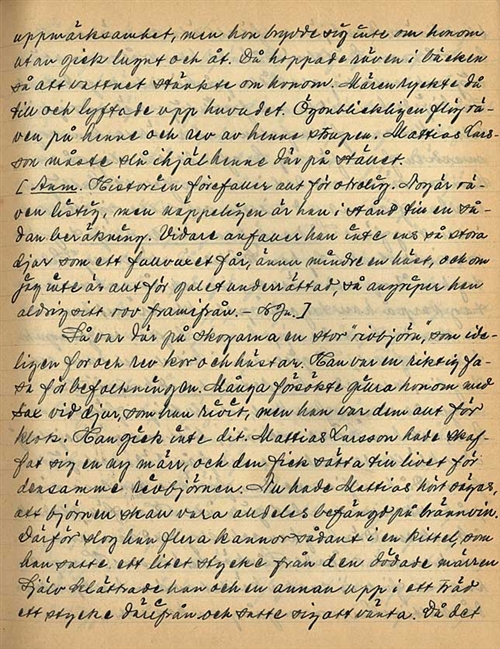 uppmärksamhet, men hon brydde sig inte om honom
utan gick lugnt och åt. Då hoppade räven i bäcken
så att vattnet stänkte om honom. Mären ryckte då
till och lyftade upp huvudet. Ögonblickligen flög rä-
ven på henne och rev av henne strupen. Mattias Lars-
son måste slå ihjäl henne där på stället.
[Anm. Historien förefaller allt för otrolig. Nog är rä-
ven listig, men näppeligen är han i stånd till en så-
dan beräkning. Vidare anfaller han inte ens så stora
djur som ett fullvuxet får, ännu mindre en häst, och om
jag inte är allt för galet underrättad, så angriper han
aldrig sitt rov framifrån. –]
Så var där på skogarna en stor "rivbjörn", som ide-
ligen for och rev kor och hästar. Han var en riktig fa-
sa för befolkningen. Många försökte gillra honom med
sax vid djur, som han rivit, men han var dem allt för
klok. Han gick inte dit. Mattias Larsson hade skaf-
fat sig en ny märr, och den fick sätta till livet för
densamme rivbjörnen. Nu hade Mattias hört sägas,
att björnen skall vara alldeles befängd på brännvin.
Därför slog han flera kannor sådant i en kittel, som
han satte ett litet stycke från den dödade märren
Själv klättrade han och en annan upp i ett träd
ett stycke därifrån och satte sig att vänta. Då det